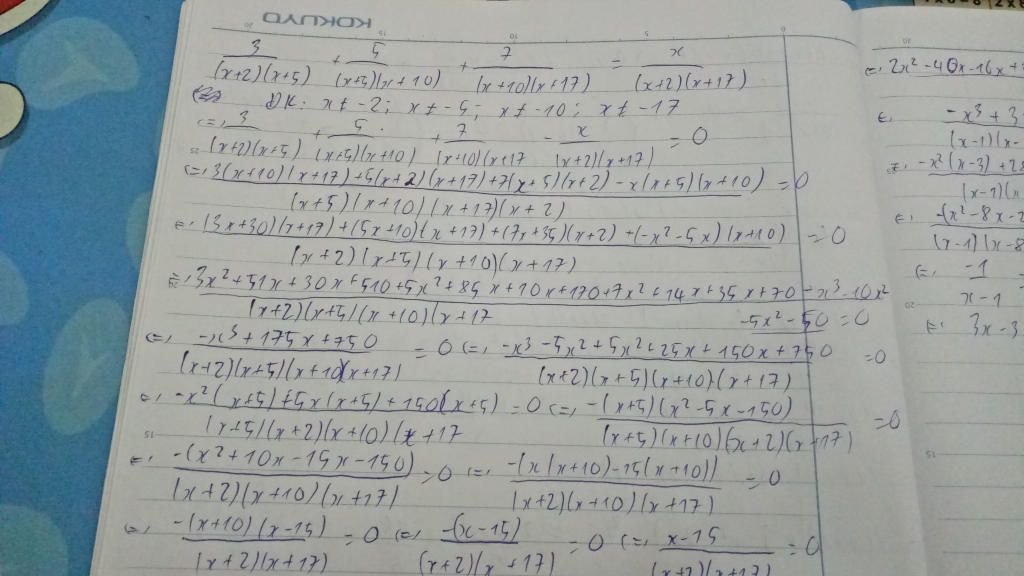 KOKUYO
3/((x+2)(x+5)) + 5/((x+5)(x+10)) + 7/((x+10)(x+17)) = x/((x+2)(x+17))
ĐK: x ≠ -2; x ≠ -5; x ≠ -10; x ≠ -17
<=> 3/((x+2)(x+5)) + 5/((x+5)(x+10)) + 7/((x+10)(x+17) - x/((x+2)(x+17)) = 0
<=> (3(x+10)(x+17)+5(x+2)(x+17)+7(x+5)(x+2)-x(x+5)(x+10))/((x+5)(x+10)(x+17)(x+2)) = 0
<=> ((3x+30)(x+17)+(5x+10)(x+17)+(7x+35)(x+2)+(-x²-5x)(x+10))/((x+2)(x+5)(x+10)(x+17)) = 0
<=> (3x²+51x+30x+510+5x²+85x+10x+170+7x²+14x+35x+70-x³-10x²-5x²-50)/((x+2)(x+5)(x+10)(x+17) = 0
<=> (-x³+175x+750)/((x+2)(x+5)(x+10)(x+17)) = 0 <=> (-x³-5x²+5x²+25x+150x+750)/((x+2)(x+5)(x+10)(x+17)) = 0
<=> (-x²(x+5)+5x(x+5)+150(x+5))/((x+5)(x+2)(x+10)(x+17) = 0 <=> (-(x+5)(x²-5x-150))/((x+5)(x+10)(x+2)(x+17)) = 0
<=> (-(x²+10x-15x-150))/((x+2)(x+10)(x+17)) = 0 <=> (-(x(x+10)-15(x+10)))/((x+2)(x+10)(x+17)) = 0
<=> (-(x+10)(x-15))/((x+2)(x+17)) = 0 <=> (-(x-15))/((x+2)(x+17)) = 0 <=> (x-15)/((x+2)(x+17)) = 0
<=> 2x²-40x-16x+
-x³+3
(x-1)(x-
-x²(x-3)+2
(x-1)(x
-(x²-8x-2
(x-1)(x-8
<=> -1
x-1
<=> 3x-3